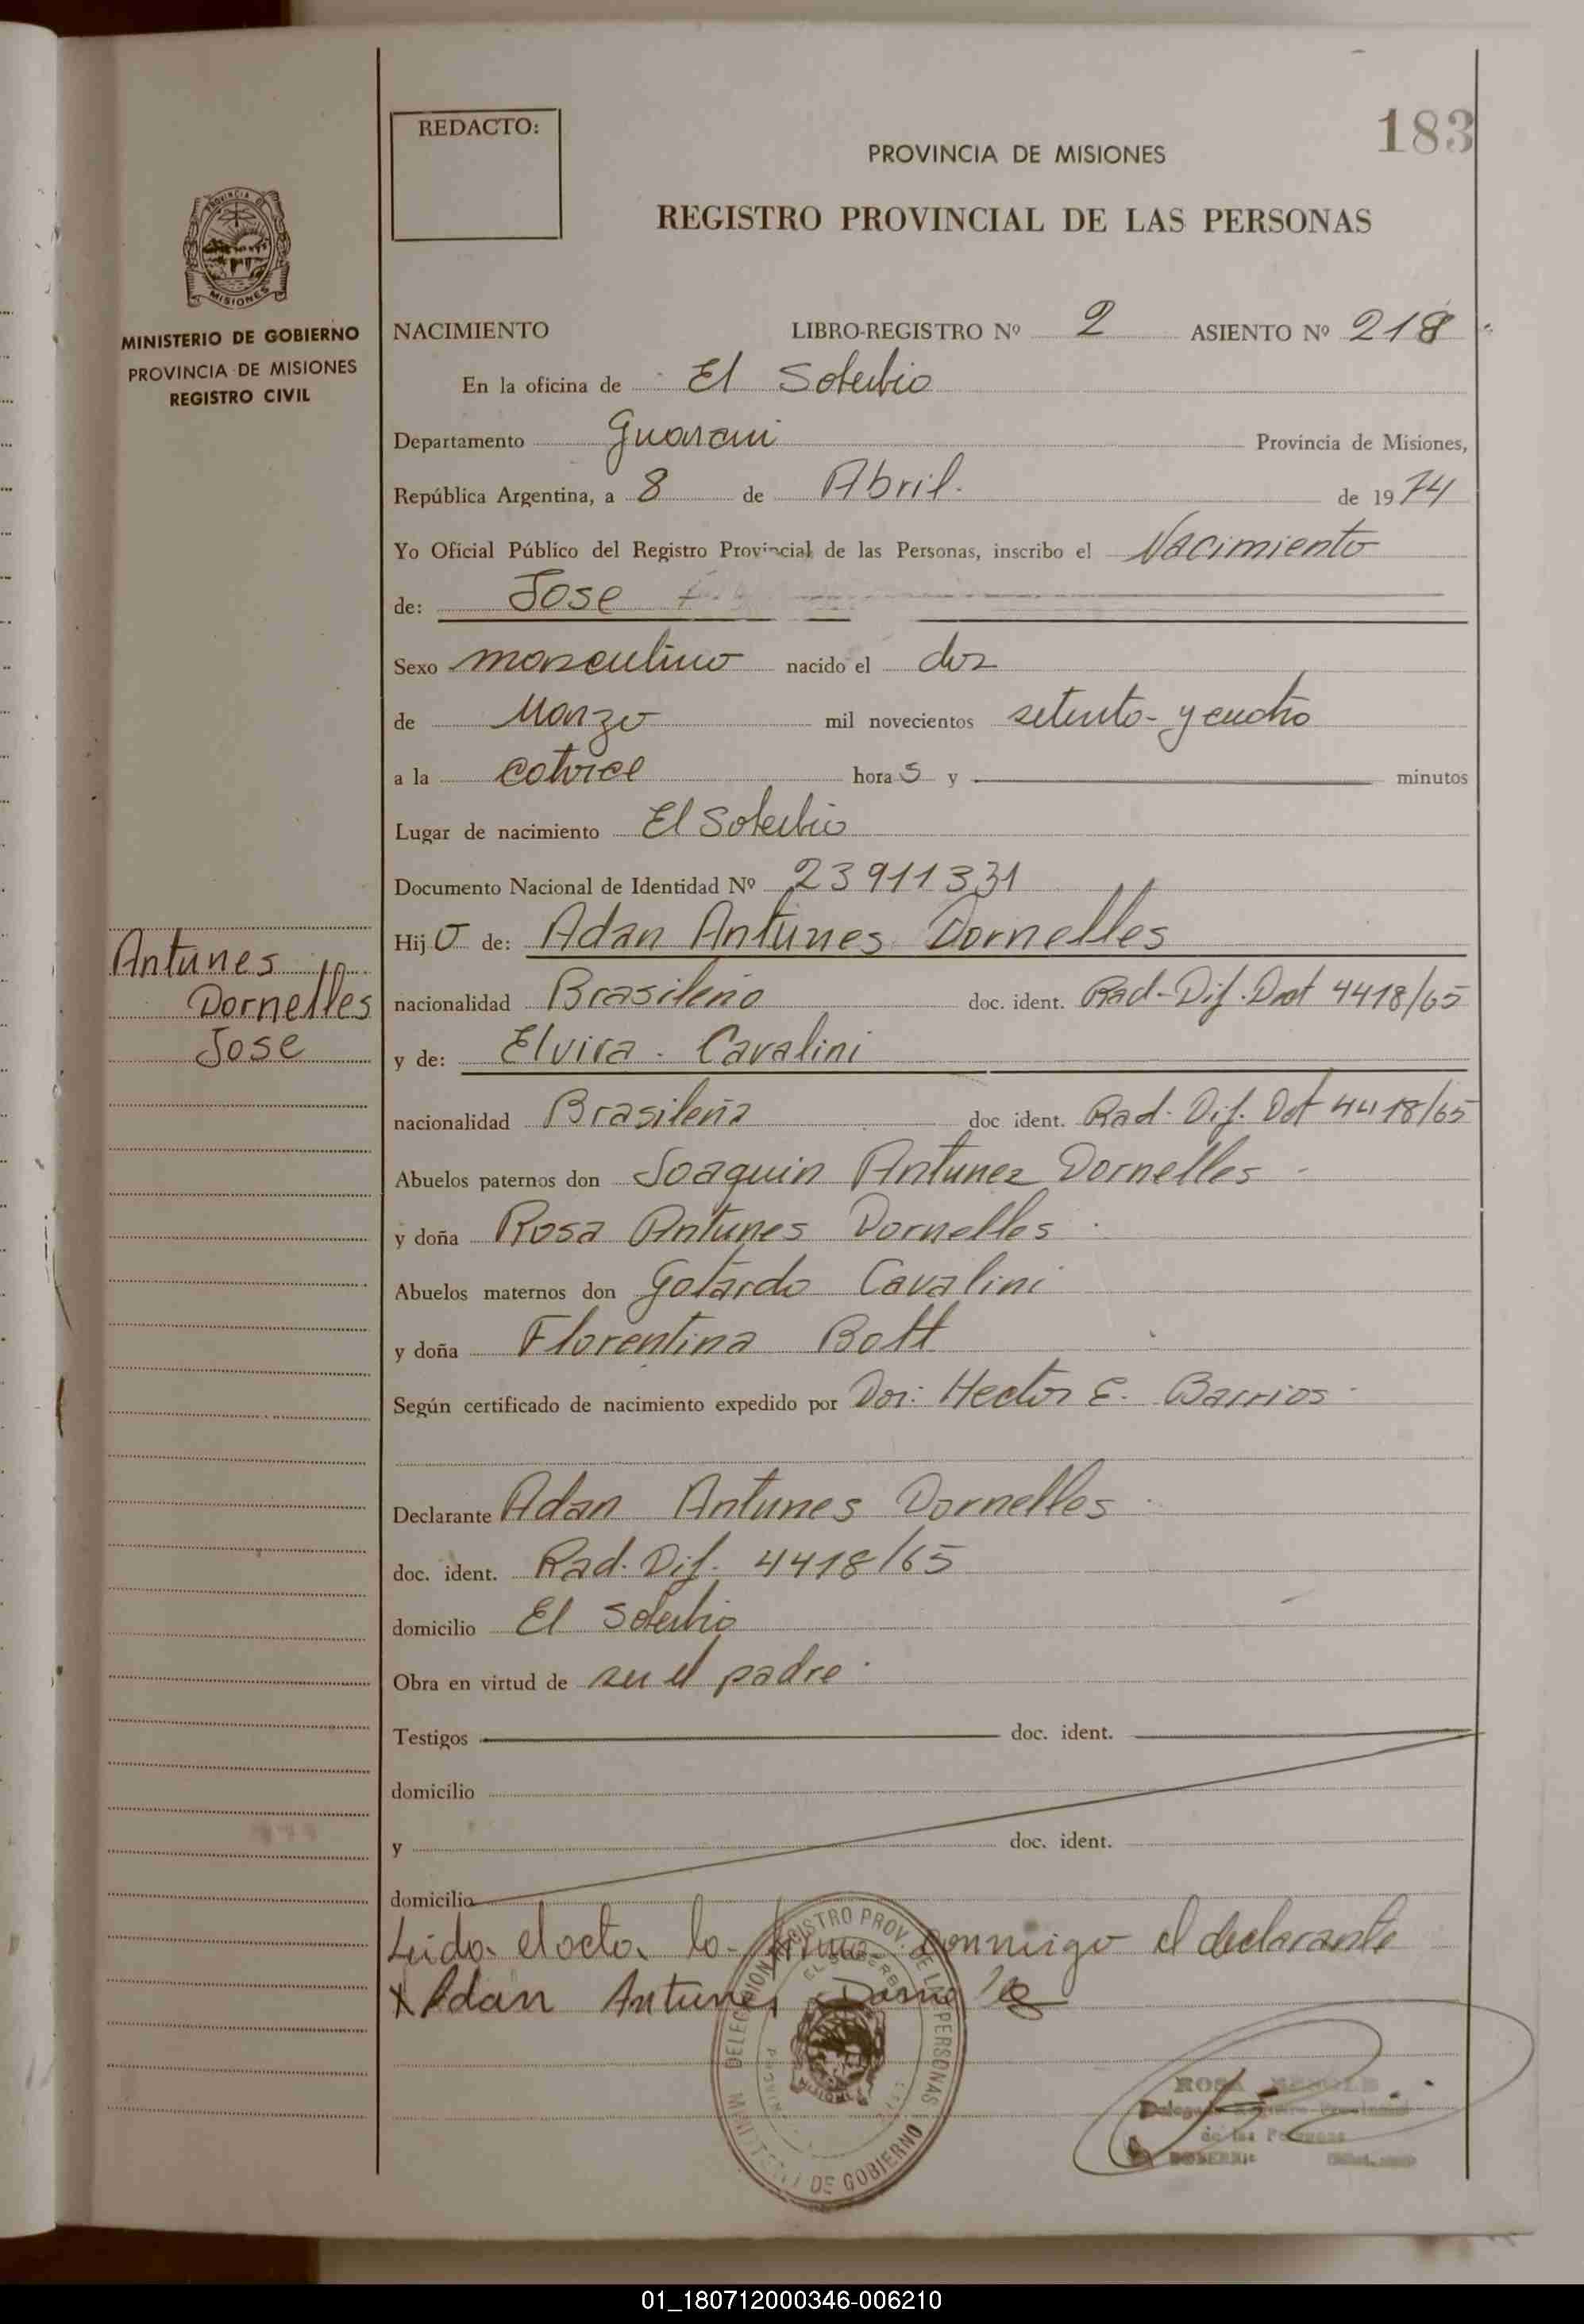 183
REDACTO:
PROVINCIA DE MISIONES
REGISTRO PROVINCIAL DE LAS PERSONAS
PROVINCIA DE
MISIONES
MINISTERIO DE GOBIERNO
PROVINCIA DE MISIONES
REGISTRO CIVIL
Antunes
Dornelles
Jose
NACIMIENTO LIBRO-REGISTRO Nº 2 ASIENTO Nº 218
En la oficina de El Soberbio
Departamento Guarani Provincia de Misiones,
República Argentina, a 8 de Abril. de 1974
Yo Oficial Público del Registro Provincial de las Personas, inscribo el Nacimiento
de: Jose
Sexo masculino nacido el dos
de Marzo mil novecientos setenta y cuatro
a la catorce horas y minutos
Lugar de nacimiento El Soberbio
Documento Nacional de Identidad Nº 23911331
Hijo de: Adan Antunes Dornelles
nacionalidad Brasileño doc. ident. Rad-Dif. 4418/65
y de: Elvira Cavalini
nacionalidad Brasileña doc ident. Rad. Dif. 4418/65
Abuelos paternos don Joaquin Antunez Dornelles
y doña Rosa Antunes Dornelles
Abuelos maternos don Gotardo Cavalini
y doña Florentina Bott
Según certificado de nacimiento expedido por Hector E. Barrios
Declarante Adan Antunes Dornelles
doc. ident. Rad. Dif. 4418/65
domicilio El Soberbio
Obra en virtud de ser el padre
Testigos doc. ident.
domicilio
y doc. ident.
domicilio
Leida el acta la firma conmigo el declarante
x Adan Antunes
DELEGACION REGISTRO PROV. DE LAS PERSONAS
EL SOBERBIO
MISIONES
DE GOBIERNO
ROSA
de las Personas
01_180712000346-006210